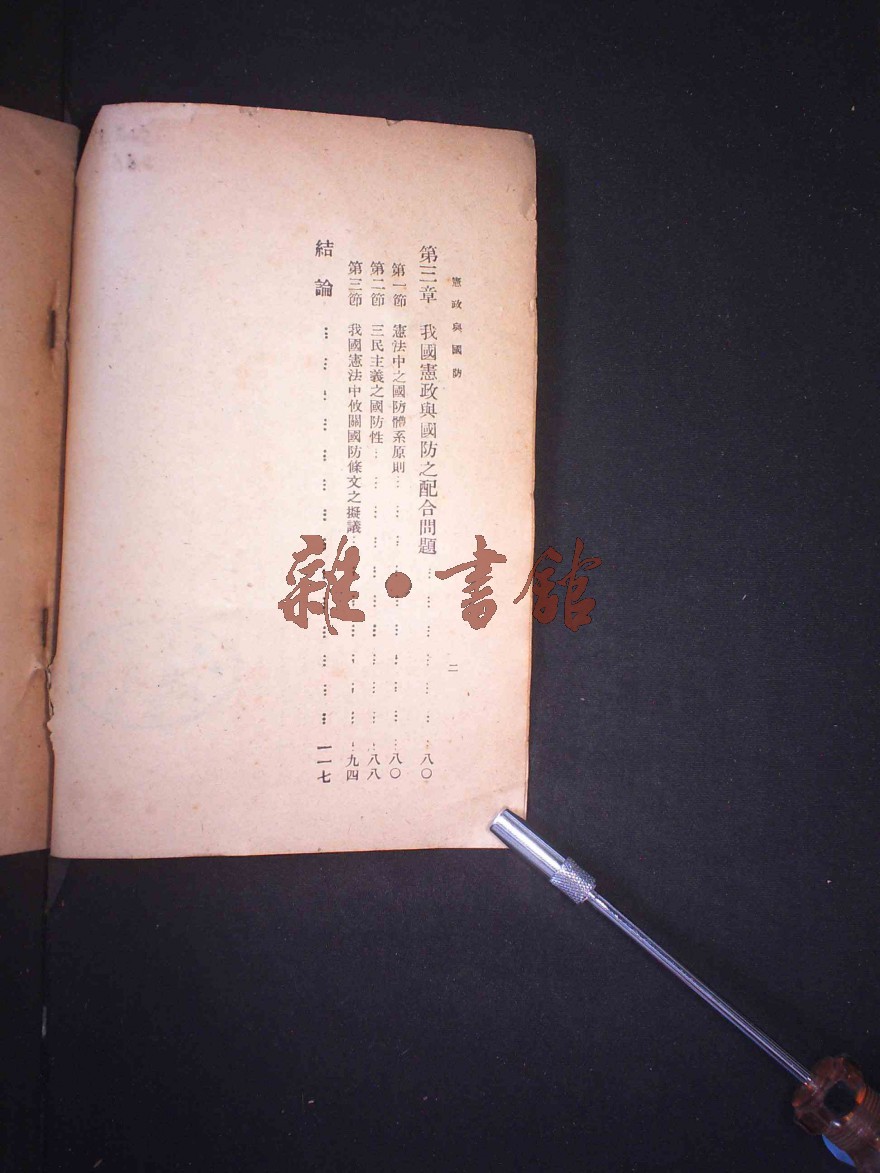 憲政與國防
二
第三章 我國憲政與國防之配合問題……八〇
第一節 憲法中之國防體系原則……八〇
第二節 三民主義之國防性……八八
第三節 我國憲法中攸關國防條文之擬議……九四
結論……一一七
雜·書館